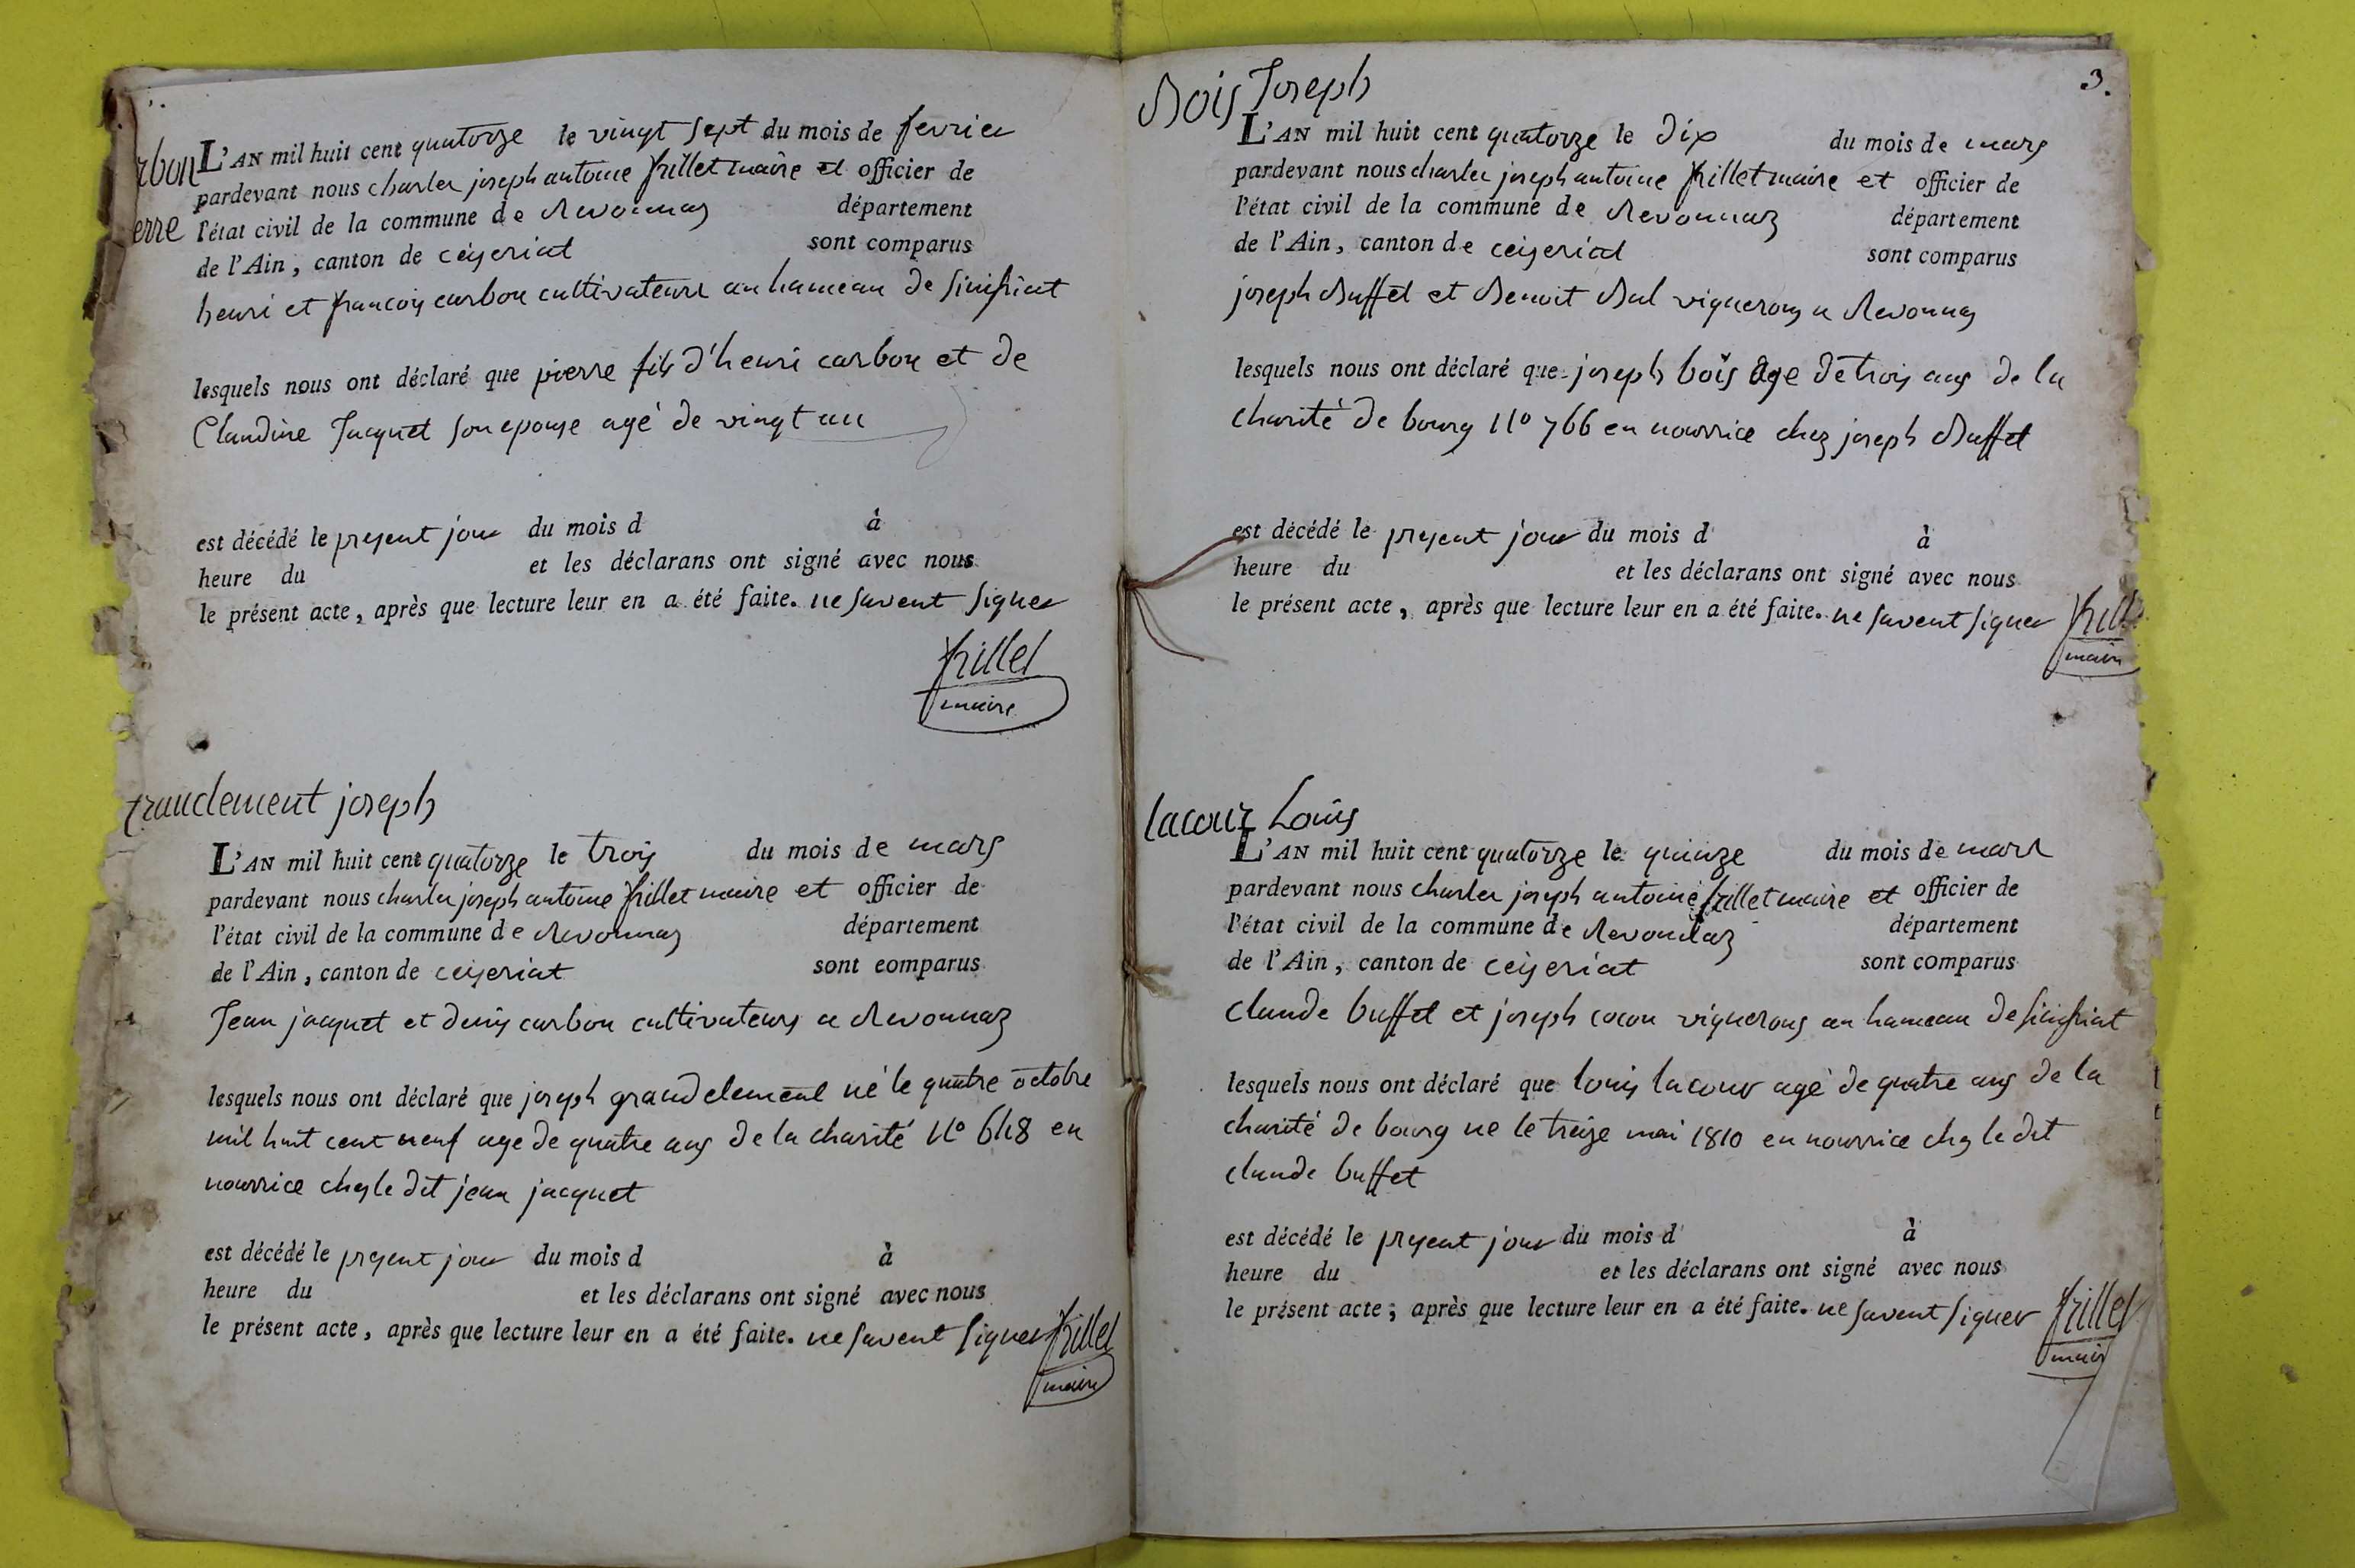 rbon
erre
L'AN mil huit cent quatorze le vingt sept du mois de fevrier
pardevant nous charles joseph antoine frillet maire et officier de
l'état civil de la commune de Revonnaz département
de l'Ain, canton de ceyseriat sont comparus
henri et francois carbon cultivateurs au hameau de
lesquels nous ont déclaré que pierre fils d'henri carbon et de
Claudine Jacquet son epouse agé de vingt un
est décédé le present jour du mois d à
heure du et les déclarans ont signé avec nous
le présent acte, après que lecture leur en a été faite. ne savent signer
frillet
maire
grandement joseph
L'AN mil huit cent quatorze le trois du mois de mars
pardevant nous charles joseph antoine frillet maire et officier de
l'état civil de la commune de Revonnaz département
de l'Ain, canton de ceyseriat sont comparus
Jean jacquet et denis carbon cultivateurs a Revonnaz
lesquels nous ont déclaré que joseph grandclement né le quatre octobre
mil huit cent neuf age de quatre ans de la charité N° 648 en
nourrice chez le dit jean jacquet
est décédé le present jour du mois d à
heure du et les déclarans ont signé avec nous
le présent acte, après que lecture leur en a été faite. ne savent signer frillet
maire
3.
Bois Joseph
L'AN mil huit cent quatorze le dix du mois de mars
pardevant nous charles joseph antoine frillet maire et officier de
l'état civil de la commune de Revonnaz département
de l'Ain, canton de ceyseriat sont comparus
joseph Buffet et Benoit Bal vignerons a Revonnas
lesquels nous ont déclaré que joseph bois age de trois ans de la
charité de bourg N° 766 en nourrice chez joseph Buffet
est décédé le present jour du mois d à
heure du et les déclarans ont signé avec nous
le présent acte, après que lecture leur en a été faite. ne savent signer frillet
maire
lacour Louis
L'AN mil huit cent quatorze le quinze du mois de mars
pardevant nous charles joseph antoine frillet maire et officier de
l'état civil de la commune de Revonnaz département
de l'Ain, canton de ceyseriat sont comparus
claude buffet et joseph cocon vignerons au hameau de
lesquels nous ont déclaré que louis lacour agé de quatre ans de la
charité de bourg ne le treize mai 1810 en nourrice chez le dit
claude buffet
est décédé le present jour du mois d à
heure du et les déclarans ont signé avec nous
le présent acte, après que lecture leur en a été faite. ne savent signer frillet
maire